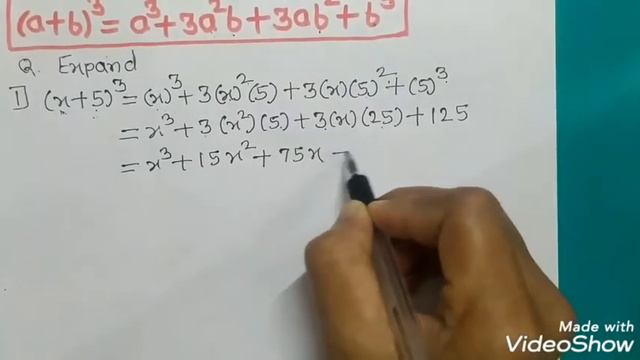 (a+b)³ = a³+3a²b+3ab²+b³
Q. Expand
I] (x+5)³ = (x)³+3(x)²(5)+3(x)(5)²+(5)³
= x³+3(x²)(5)+3(x)(25)+125
= x³+15x²+75x -
Made with
VideoShow